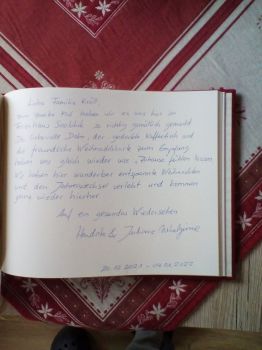 Liebe Familie
zum zweiten Mal haben wir es uns hier im
Ferienhaus so richtig gemütlich gemacht.
Die liebevolle Deko, der gedeckte Kaffeetisch und
die freundliche Weihnachtskarte zum Empfang
haben uns gleich wieder wie "Zuhause" fühlen lassen.
Wir haben hier wunderbar entspannte Weihnachten
und den Jahreswechsel verlebt und kommen
gerne wieder hierher.
Auf ein gesundes Wiedersehen
Hendrik &
20.12.2021 -